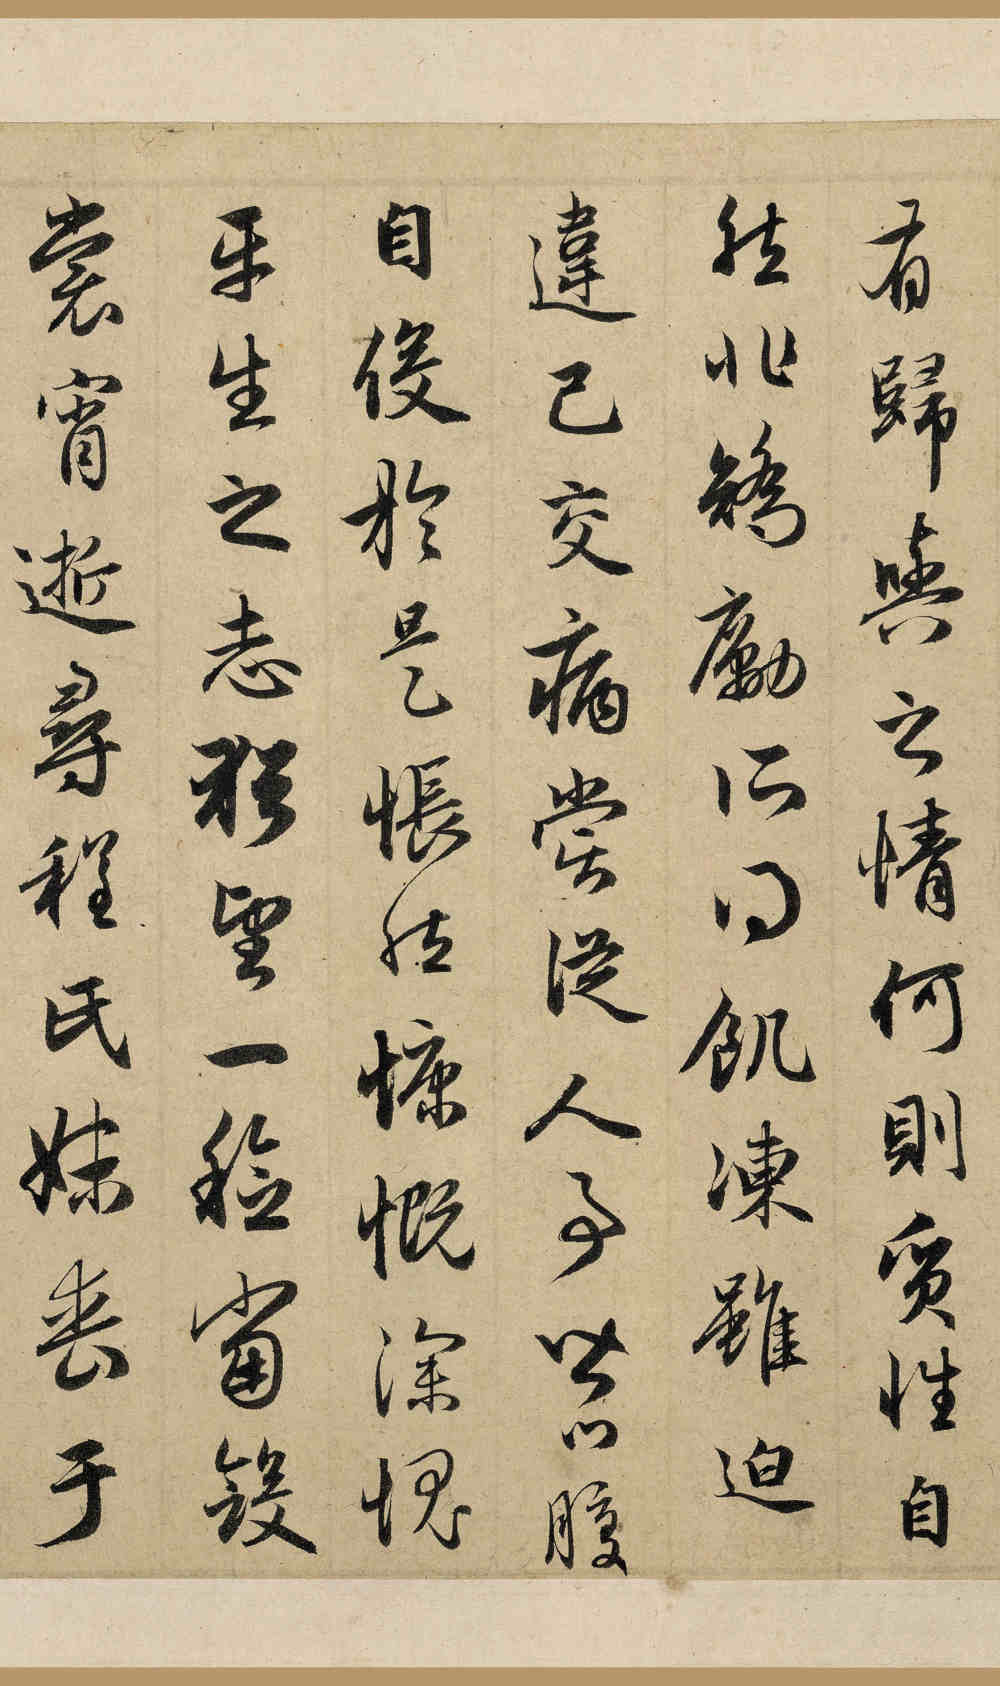 有歸與之情何則質性自
然非矯勵所得飢凍雖迫
違己交病嘗從人事皆口腹
自役於是悵然慷慨深愧
平生之志猶望一稔當斂
裳宵逝尋程氏妹喪于